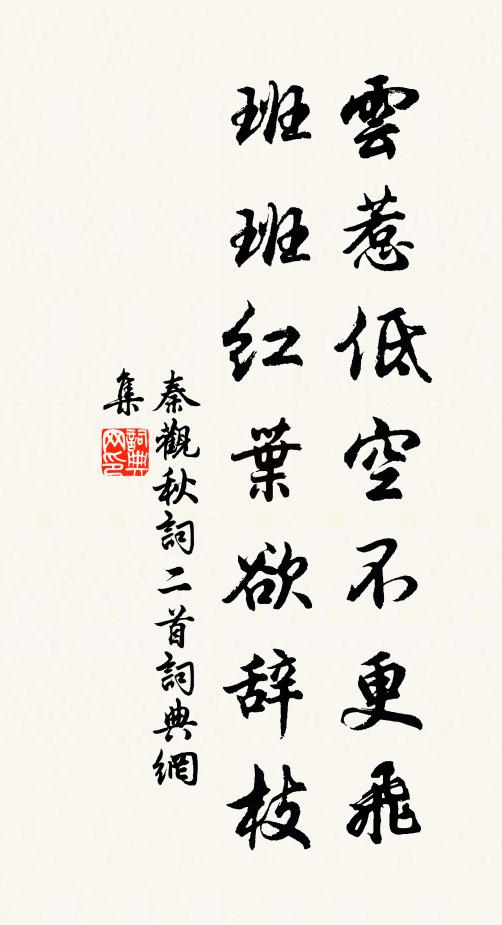 雲惹低空不更飛
班班紅葉欲辞枝
秦觀秋詞二首詞典網
集
詞典
网印